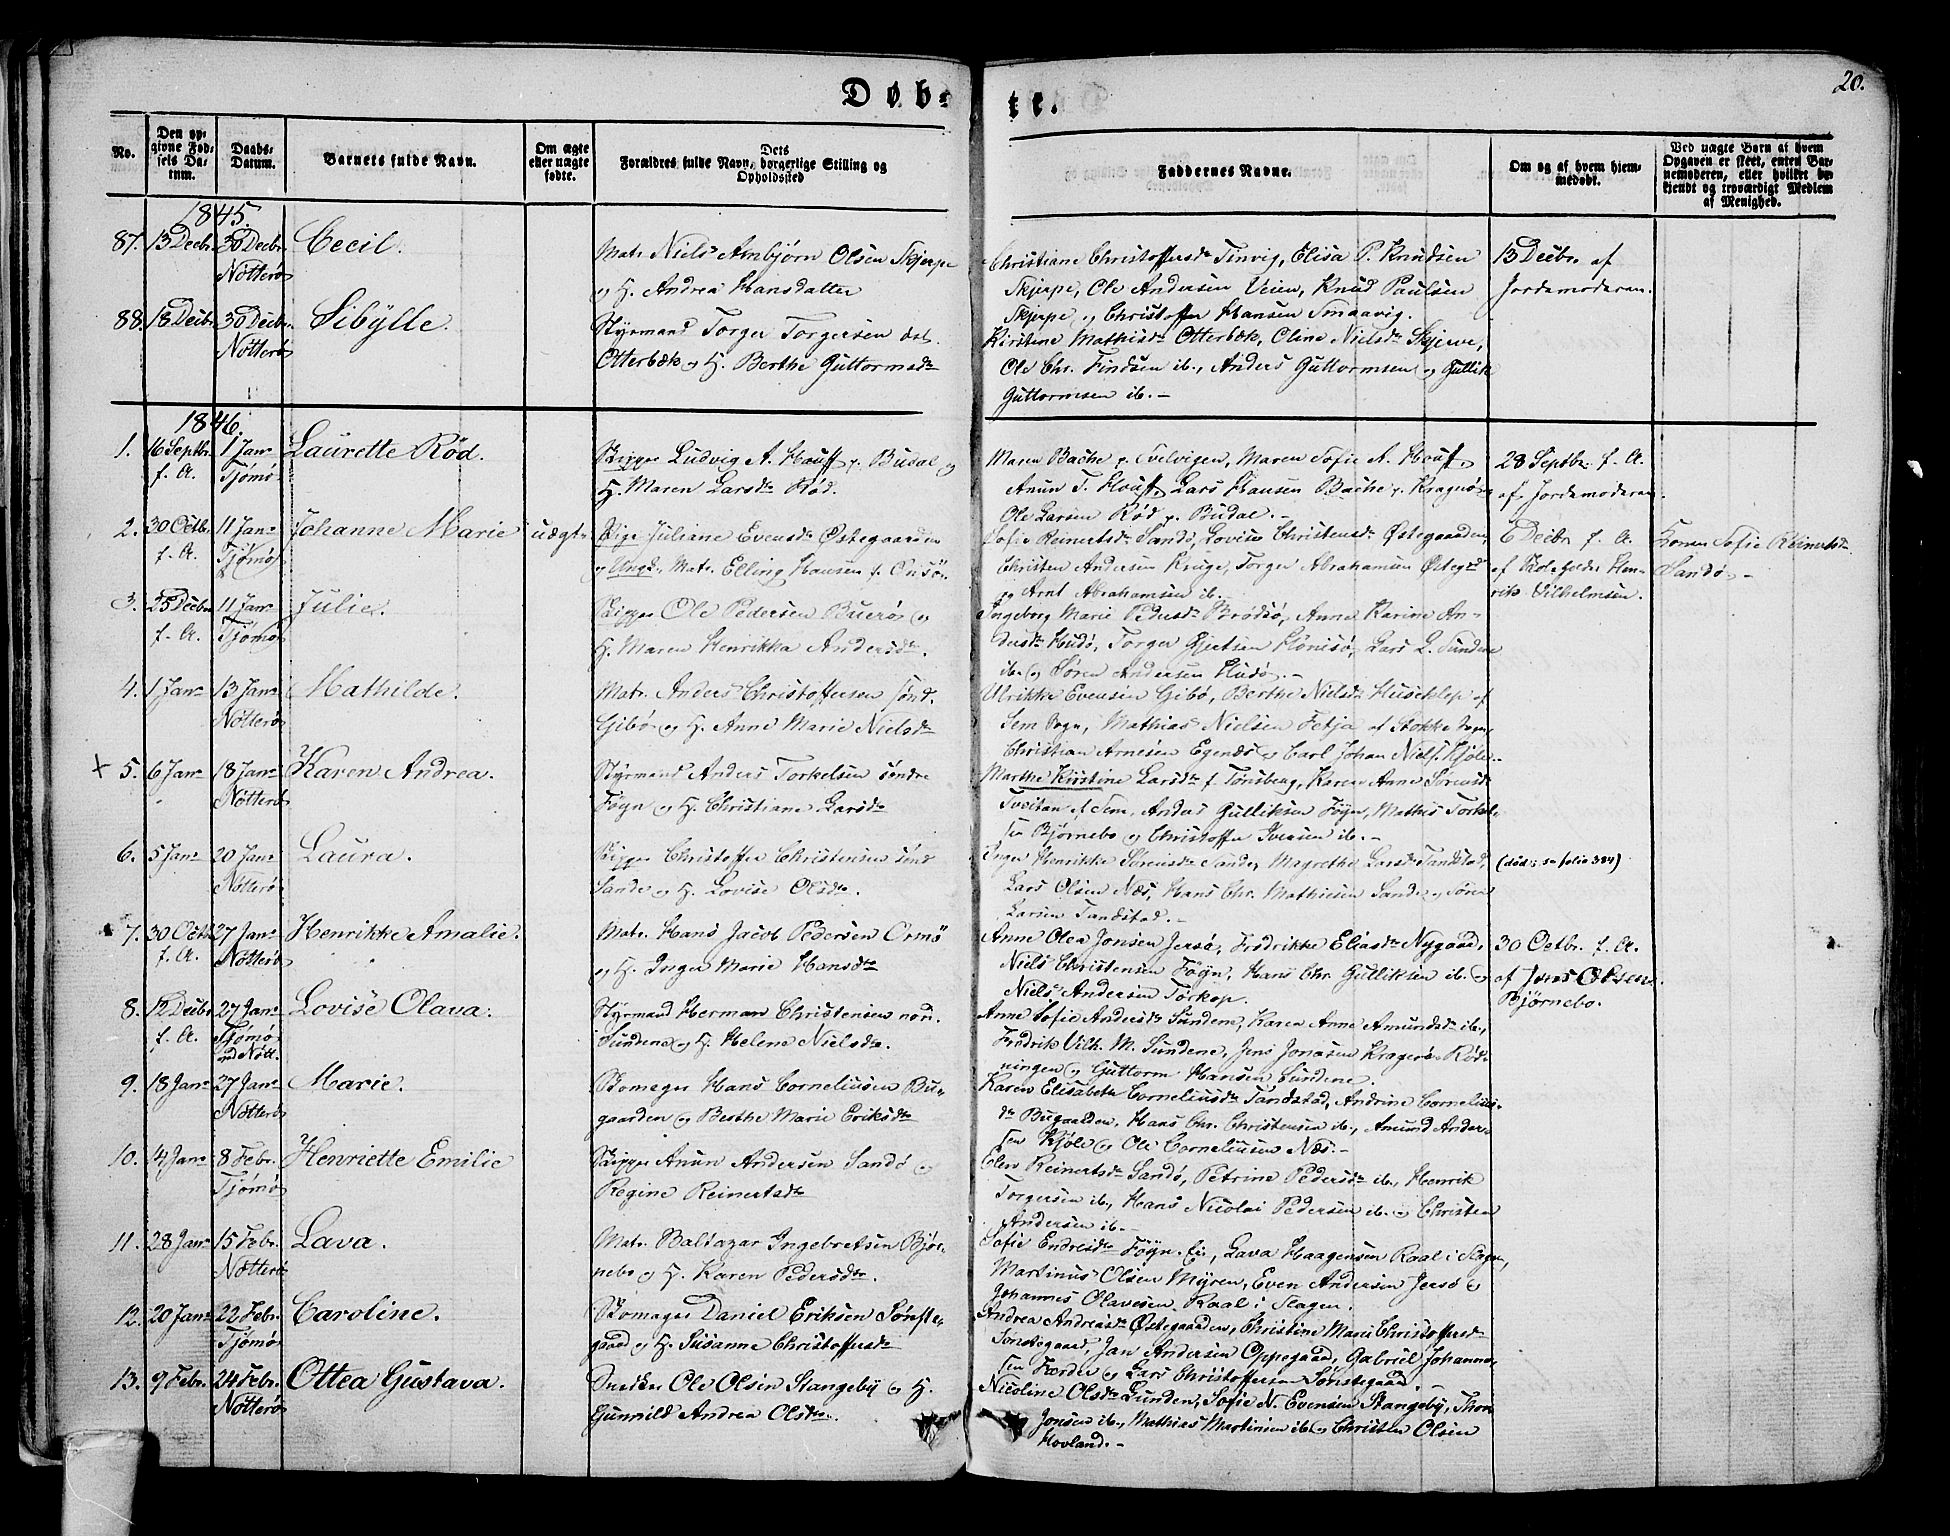 20.
Døb-
te.
No.
Den op-
givne Fød-
sels Da-
tum.
Daabs-
Datum.
Barnets fulde Navn.
Om ægte
eller uægte
fødte.
Dets
Forældres fulde Navn, borgerlige Stilling og
Opholdssted
Faddernes Navne.
Om og af hvem hjem-
medøbt.
Ved uægte Barn af hvem
Opgaven er skeet, enten Bar-
nemoderen, eller hvilket be-
kjendt og troværdigt Medlem
af Menighed.
1845.
87. 13 Decbr. 30 Decbr. Nøtterø
Cecil.
Matr. Niels Arnbjørn Olsen Skjerpe
og H. Andrea Hansdatter
Christiane Christoffersdr Tinvig, Elisa P. Knudsen
Skjerpe, Ole Andersen Veien, Knud Paulsen
Skjerpe og Christoffer Hansen Smaavig.
13 Decbr. af
Jordemoderen.
88. 18 Decbr. 30 Decbr. Nøtterø
Sibylle.
Styrmand Torger Torgersen
Otterbæk og H. Berthe Guttormsdr
Kirstine Mathisdr Otterbæk, Oline Nielsdr Skjerve,
Ole Chr. Findsen ib., Anders Guttormsen og Gullik
Guttormsen ib.-
1846.
1. 16 Septbr. f. A. 1 Janr Tjømø
Laurette Rød.
Skipper Ludvig A. Houff p. Budal og
H. Maren Larsdr Rød.
Maren Bache p. Svelvigen, Maren Sofie A. Houff,
Anun T. Houff, Lars Hansen Bache p. Kragnøs
Ole Larsen Rød p. Budal.-
28 Septbr. f. A.
af Jordemoderen.
2. 30 Octbr. f. A. 11 Janr Tjømø
Johanne Marie
uægt.
Pige Juliane Evensdr Østegaarden
og Ungk. Matr. Elling Hansen f. Onsø.
Sofie Reinertsdr Sandø, Lovise Christensdr Østegaarden,
Christen Andersen Kruge, Torger Abrahamsen Østegrd
og Arnt Abrahamsen ib.
6 Decbr. f. A.
af Skoleholder Hen-
rik Vilhelmsen.
Konen Sofie Reinertsdr
Sandø.-
3. 25 Decbr f. A. 11 Janr Tjømø
Julie.
Skipper Ole Pedersen Buerø og
H. Maren Henrikka Andersdr.
Ingeborg Marie Pedersdr Brødsø, Anne Karine An-
dersdr Hudø, Torger Gjertsen Hönisö, Lars L. Sundene
ib. og Søren Andersen Hudø.-
4. 1 Janr 13 Janr Nøtterø
Mathilde.
Matr. Anders Christoffersen sønd.
Gibø og H. Anne Marie Nielsdr
Ulrikke Evensen Gibø, Berthe Nielsdr Huseklep af
Sem Sogn, Mathias Nielsen Fetja af Stokke Sogn,
Christian Arnesen Egenæs og Carl Johan Niels. Kjøle.-
× 5. 6 Janr 18 Janr Nøtterø
Karen Andrea.
Styrmand Anders Torkelsen søndre
Føyn og H. Christiane Larsdr
Marthe Kirstine Larsdr f. Tønsberg, Karen Anne Sørensdr
Tveitan af Sem, Anders Gulliksen Føyn, Mathis Torkel-
sen Bjørnebo og Christoffer Iversen ib.-
6. 5 Janr 20 Janr Nøtterø
Laura.
Skipper Christoffer Christensen sønd
Sande og H. Lovise Olsdr.
Inger Henrikke Sørensdr Sande, Magrethe Larsdr Tandstad,
Lars Olsen Næs, Hans Chr. Mathiesen Sande og Søren
Larsen Tandstad.-
(død: se folio 384)
7. 30 Octb f. A. 27 Janr Nøtterø
Henrikke Amalie.
Matr. Hans Jacob Pedersen Ormø
og H. Inger Marie Hansdr
Anne Olea Jonsen Jersø, Fredrikke Eliasdr Nygaard,
Niels Christensen Føyn, Hans Chr. Gulliksen ib. og
Niels Andersen Torkop.
30 Octbr. f. A.
af Jens Olsen
Bjørnebo.
8. 12 Decbr f. A. 27 Janr Tjømø ved Nøtt.
Lovise Olava.
Styrmand Herman Christensen nor.
Sundene og H. Helene Nielsdr.
Anne Sofie Andersdr Sundene, Karen Anne Amundsdr ib.,
Fredrik Vilh. M. Sundene, Jens Jonasen Kragerø Rød-
ningen og Guttorm Hansen Sundene.
9. 18 Janr 27 Janr Nøtterø
Marie.
Skomager Hans Corneliusen Bu-
gaarden og Berthe Marie Eriksdr
Karen Elisabeth Corneliusdr Tandstad, Andrine Cornelius-
dr Bugaarden, Hans Chr. Christensen ib., Amund Ander-
sen Kjøle og Ole Corneliusen Næs.-
10. 14 Janr 8 Febr. Tjømø
Henriette Emilie
Skipper Anun Andersen Sandø og
Regine Reinertsdr
Elen Reinertsdr Sandø, Petrine Pedersdr ib., Henrik
Torgersen ib., Hans Nicolai Pedersen ib. og Christen
Andersen ib.-
11. 28 Janr 15 Febr. Nøtterø
Lava.
Matr. Baltazar Ingebretsen Bjør-
nebo og H. Karen Pedersdr.
Sofie Endresdr Føyn. Ei., Lava Haagensen Raal i Slagn,
Martinus Olsen Myren, Even Andersen Jersø og
Johannes Olavesen Raal i Slagen.
12. 20 Janr 22 Febr. Tjømø
Caroline.
Skomager Daniel Eriksen Sønste-
gaad og H. Susanne Christoffersdr
Andrea Andreasdr Østegaarden, Christine Marie Christoffersdr
Sønstegaad, Jan Andersen Oppegaad, Gabriel Johanne-
sen Færder og Lars Christoffersen Sønstegaad.
13. 9 Febr. 24 Febr. Nøtterø
Ottea Gustava.
Snedker Ole Olsen Stangeby og H.
Gunnild Andrea Olsdr.
Nicoline Olsdr Lunden, Sofie N. Evensen Stangeby, Thor
Jonsen ib., Mathias Martinsen ib. og Christen Olsen
Hovland.-